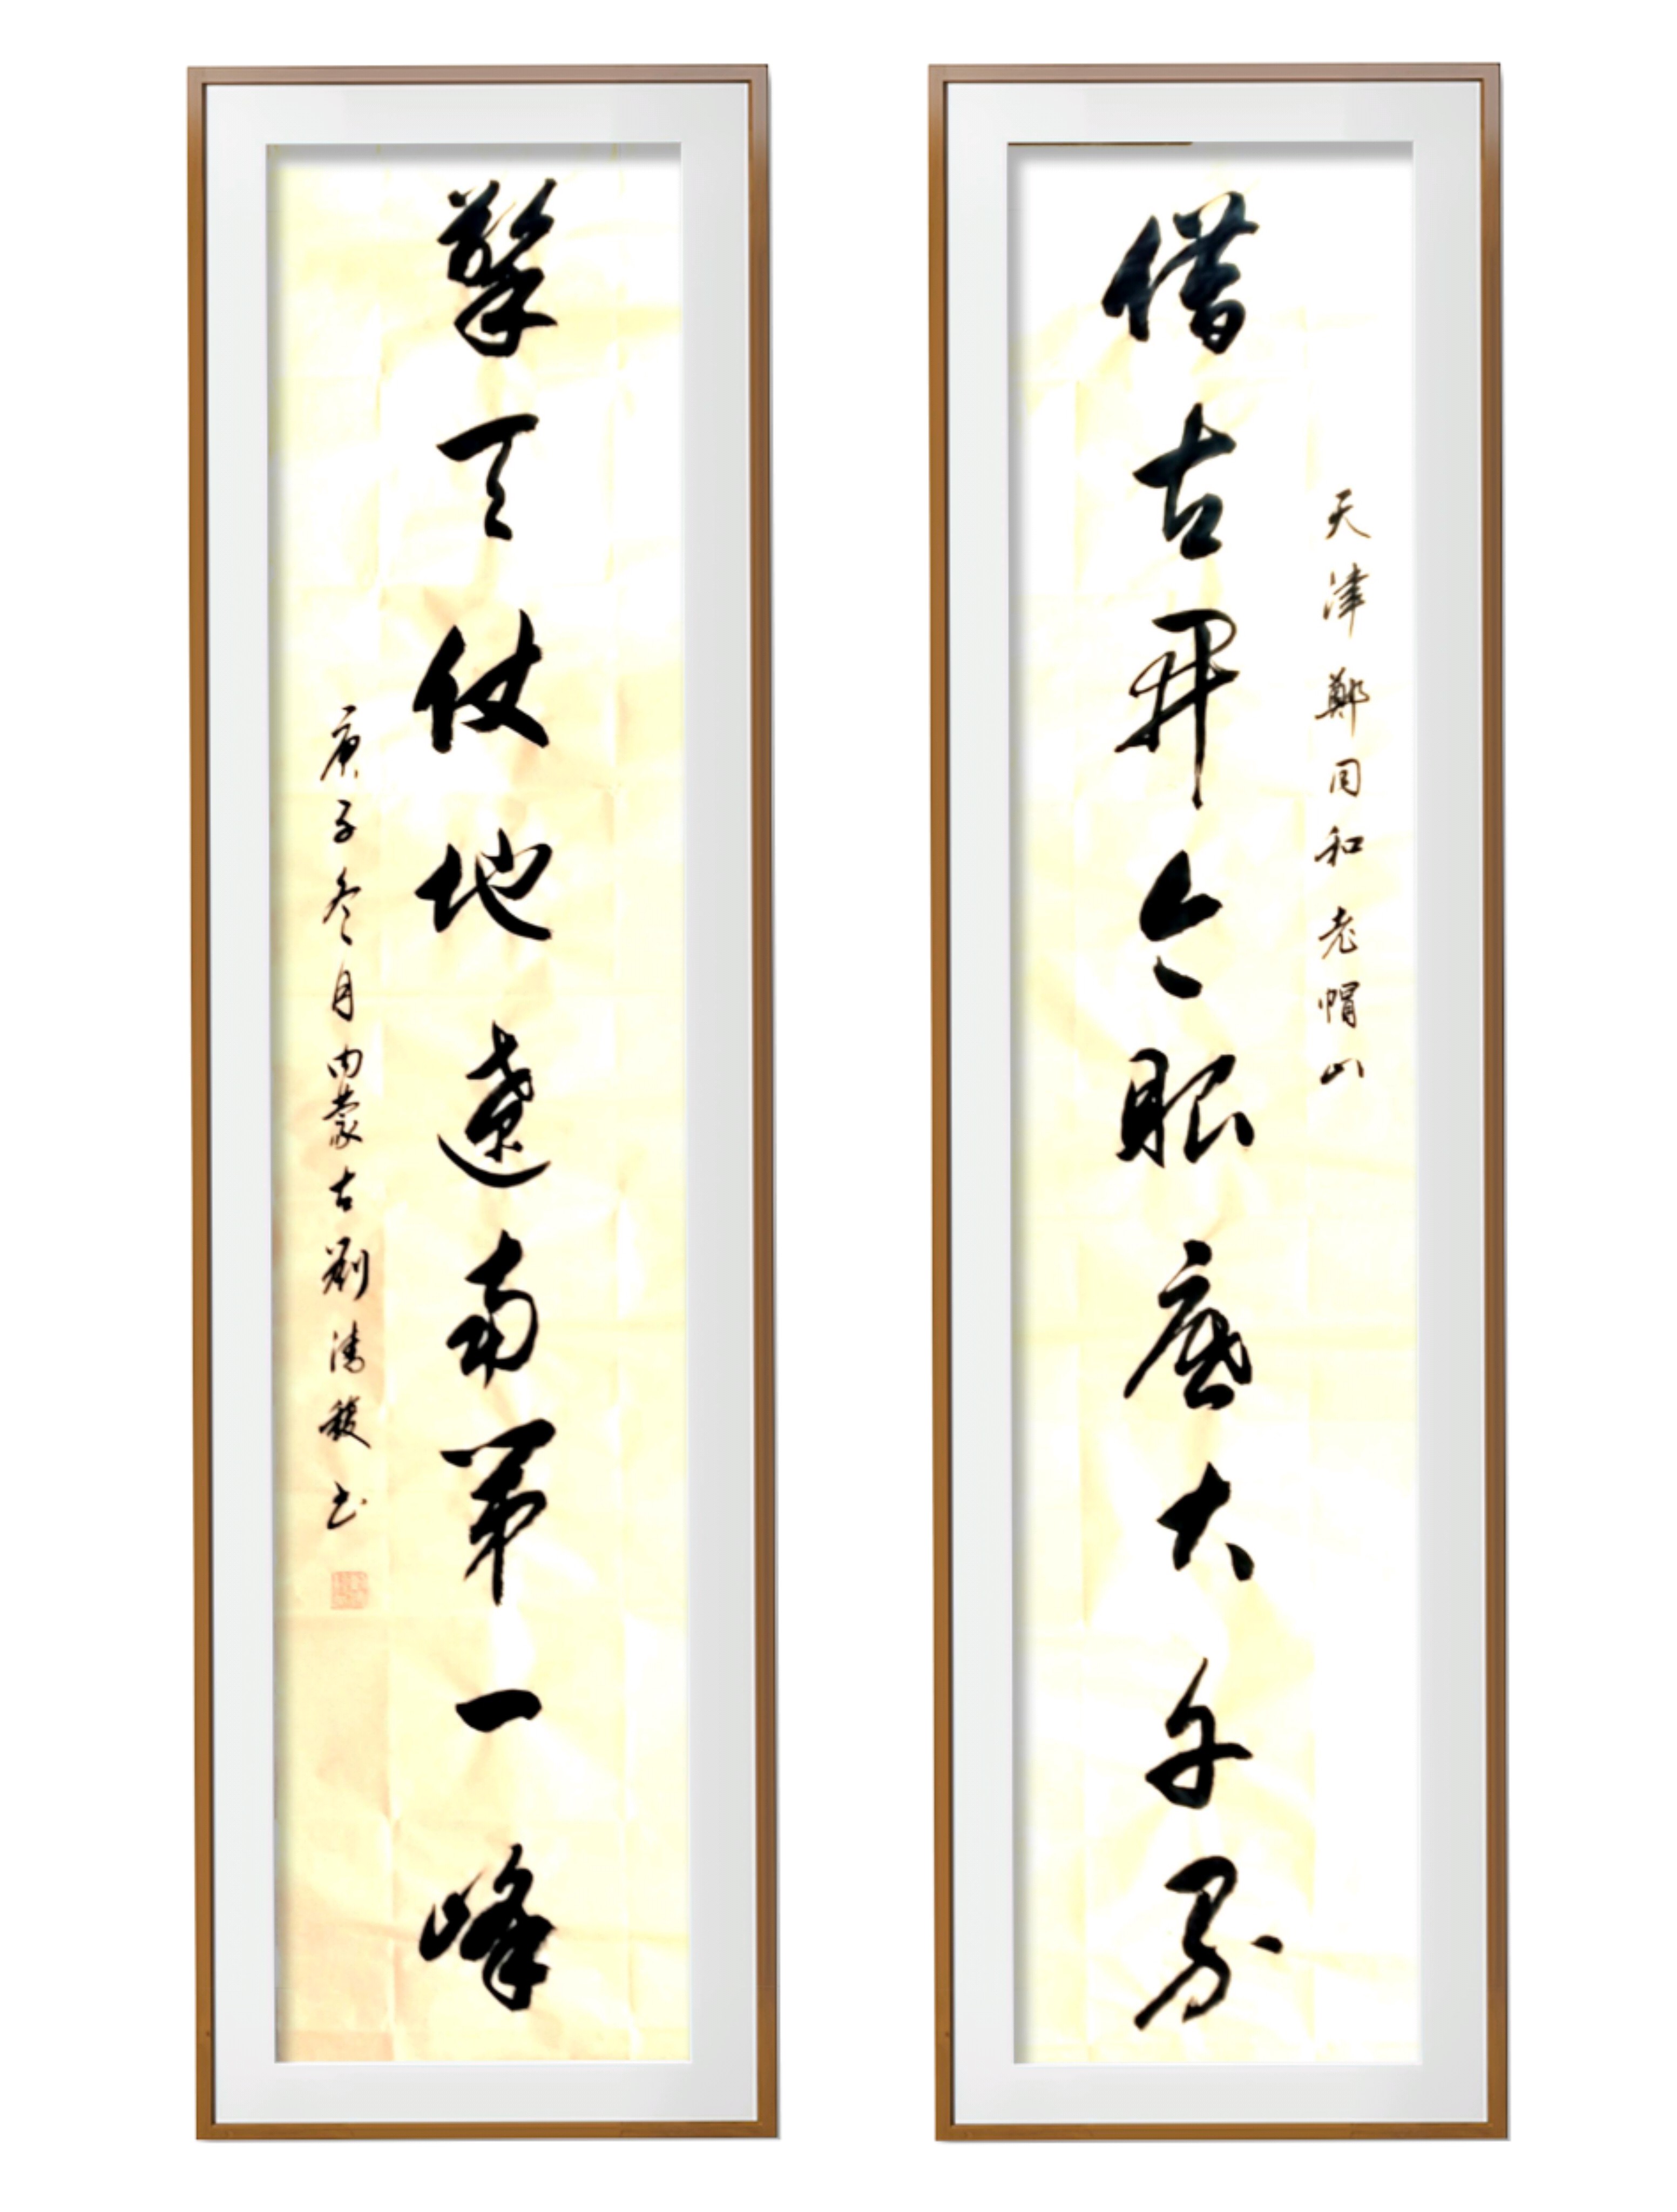 天津鄭同和老帽山
借古开今眼底大千界
擎天仗地遼南第一峰
庚子冬月内蒙古劉清毅书